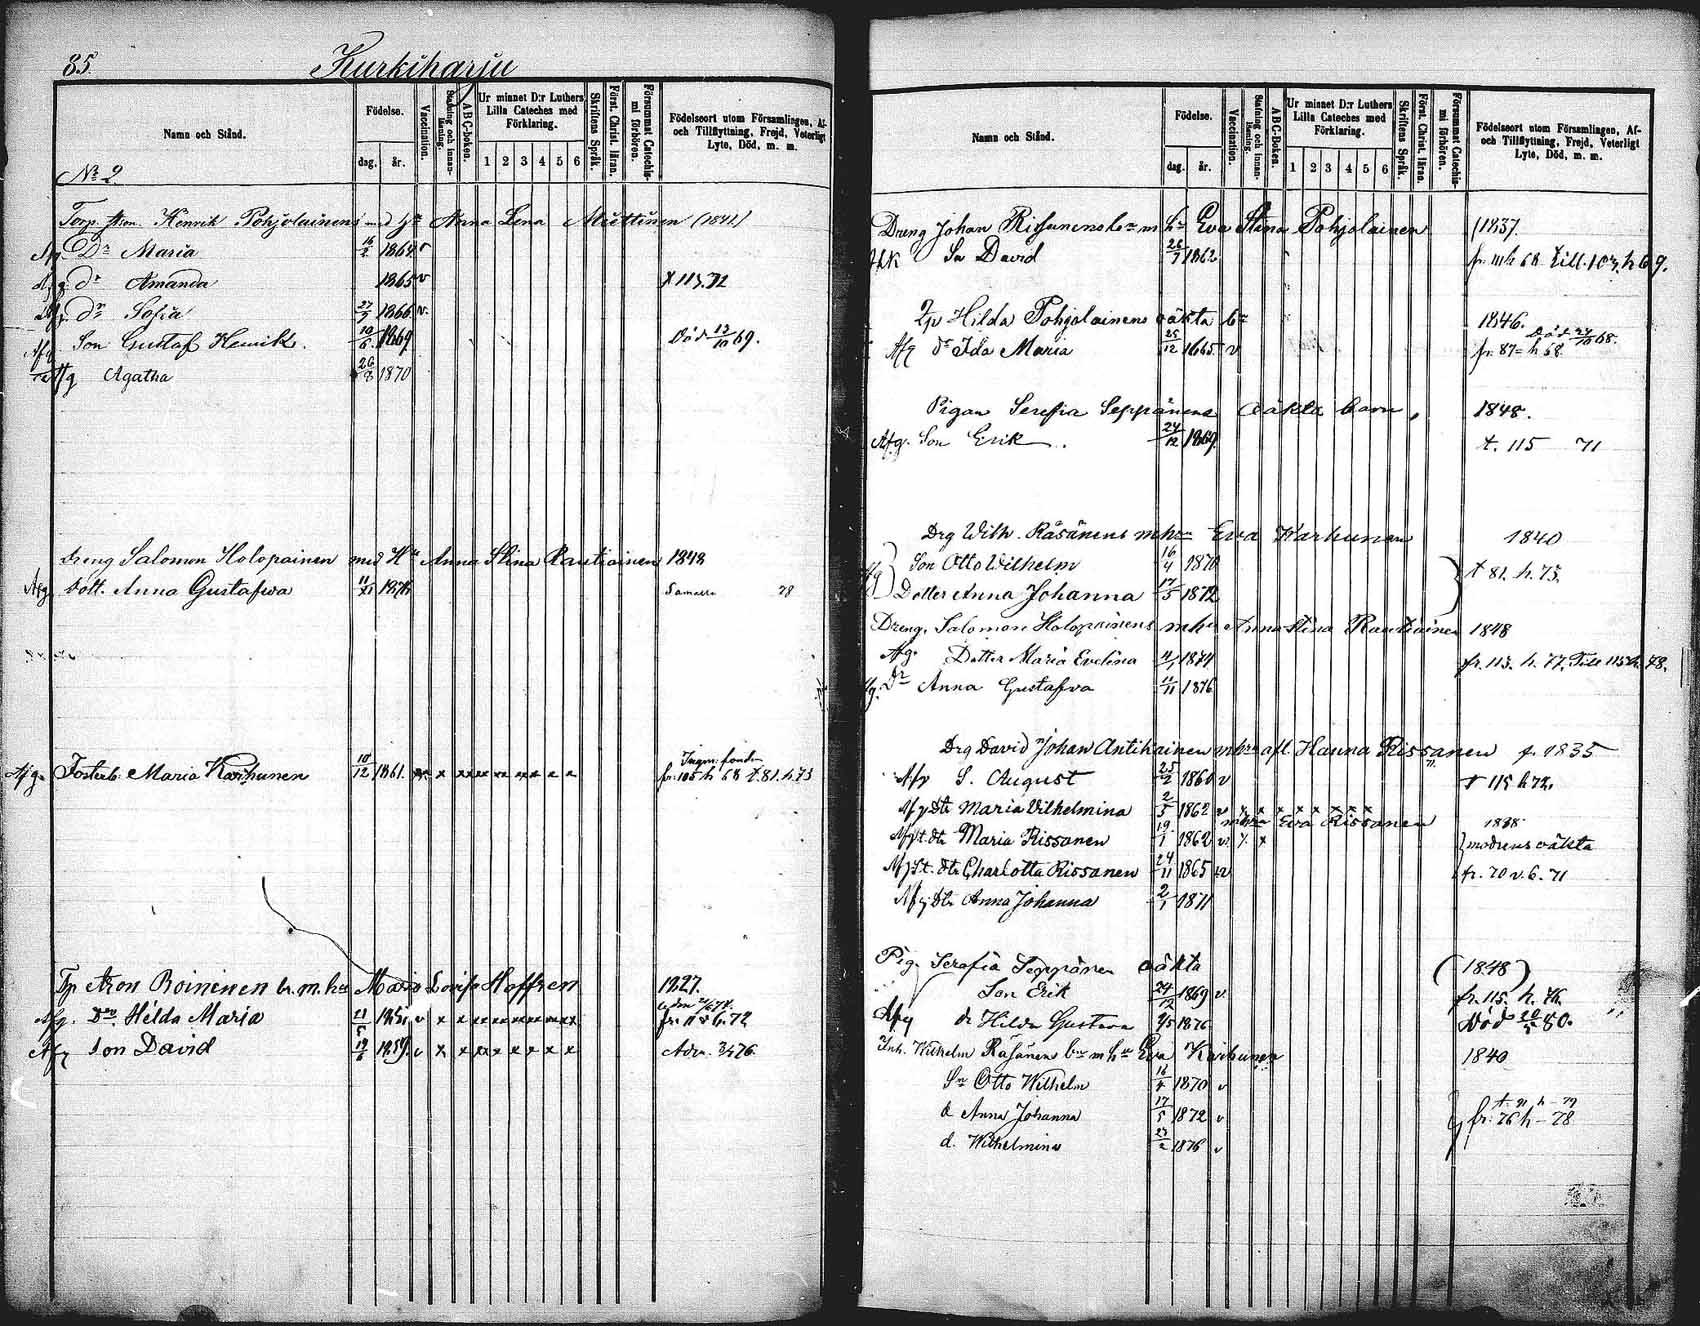 85.
Kurkiharju
Namn och Stånd.
Födelse.
dag.
år.
Vaccination.
Stafning och innan-läsning.
ABC-boken.
Ur minnet D:r Luthers
Lilla Cateches med
Förklaring.
1 2 3 4 5 6
Skriftens Språk.
Först. Christ. läran.
Försummat Catechis-mi förhören.
Födelseort utom Församlingen, Af-
och Tillflyttning, Frejd, Veterligt
Lyte, Död, m. m.
No 2.
Henrik Pohjolainens Anna Lena Miettinen (1841)
Afg Dr Maria 16/2 1864 v
Afg dr Amanda 1865 v 115.72
dr Sofia 27/7 1866 v
Afg Son Gustaf Henrik. 10/6 1869 Död 13/10 69.
Afg Agatha 26/8 1870
Dreng Salomon Holopainen med Hu Anna Stina Rautiainen 1848
Afg Dott. Anna Gustafva 11/XI 1876 Samma 78
Afg. Fosterb. Maria Karhunen 10/12 1861. x x x x x x x x x
fr. 105 h 68 t. 81. h. 73
Tp. Aron Roininen b. m. hu Maria Lovisa Hoffren 1827.
Afg. Dr. Hilda Maria 21/5 1851 v x x x x x x x x x
Afg Son David 1859. v x x x x x x x x
Namn och Stånd.
Födelse.
dag.
år.
Vaccination.
Stafning och innan-läsning.
ABC-Boken.
Ur minnet D:r Luthers
Lilla Cateches med
Förklaring.
1 2 3 4 5 6
Skriftens Språk.
Först. Christ. läran.
Försummat Catechis-mi förhören.
Födelseort utom Församlingen, Af-
och Tillflyttning, Frejd, Veterligt
Lyte, Död, m. m.
Dreng Johan Rissanens bn m hu Eva Stina Pohjolainen 1837.
Sn David 26/7 1862 Till. 103, h 69.
Hilda Pohjolainens oäkta bn 1846.
Afg dr Ida Maria 25/12 1865 v fr. 87 h 68. Död 24/10 68.
Pigan Serefia Seppänens oäkta barn, 1848.
Afg. Son Erik. 24/12 1869 t. 115 71
Drg Wilh. Räsänens m hu Eva Karhunen 1840
Son Otto Wilhelm 16/4 1870
t 81. h. 75.
Dotter Anna Johanna 17/5 1872
Dreng. Salomon Holopainens m hu Anna Stina Rautiainen 1848
Afg. Dotter Maria Evelina 1874 fr. 113. h. 77. Till 115 h. 78.
Afg. Dr Anna Gustafva 11/11 1876
Drg David Johan Antikainen m hu afl. Hanna Rissanen f. 1835
Afg S. August 25/2 1860 v t 115 h 72.
Afg Dtr Maria Vilhelmina 2/5 1862 v x x x x x x x x
m hu Eva Rissanen 1838
Afg t. dtr Maria Rissanen 19/1 1862 v. x x modrens oäkta
Afg t. dtr Charlotta Rissanen 24/11 1865 v fr. 70 v. 6. 71
Afg Dtr Anna Johanna 2/1 1871
Pig. Serafia Seppänen oäkta (1848)
Son Erik 24/12 1869 v fr. 115. h. 76.
Afg dr Hilda Gustava 9/5 1876 Död 20/5 80.
Inh. Wilhelm Räsänen bn m hu Eva Karhunen 1840
Sn Otto Wilhelm 16/4 1870 v
d Anna Johanna 17/5 1872 v fr. 76 h - 78
d. Wilhelmina 23/2 1876 v